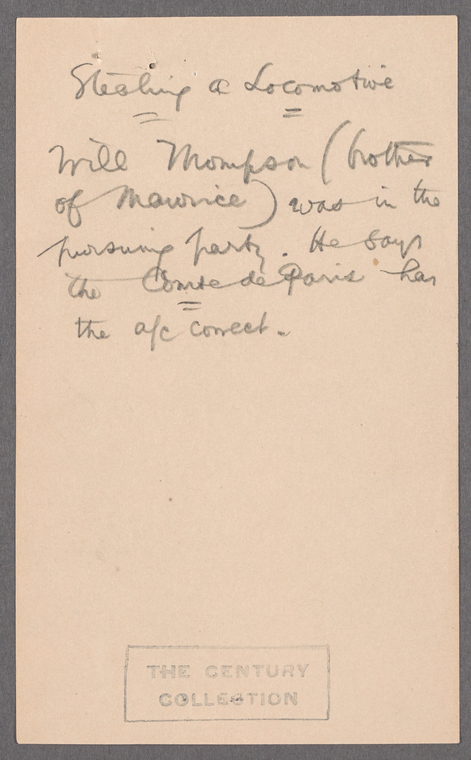 Stealing a Locomotive
Will Thompson (brother
of Maurice) was in the
pursuing party. He says
the Comte de Paris has
the a/c correct.
THE CENTURY
COLLECTION